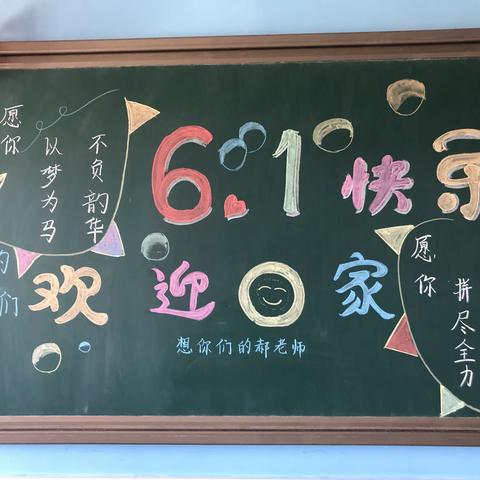 愿你
以梦为马
不负韵华
6.1快乐
的
们
欢迎回家
想你们的郝老师
愿你
拼尽全力